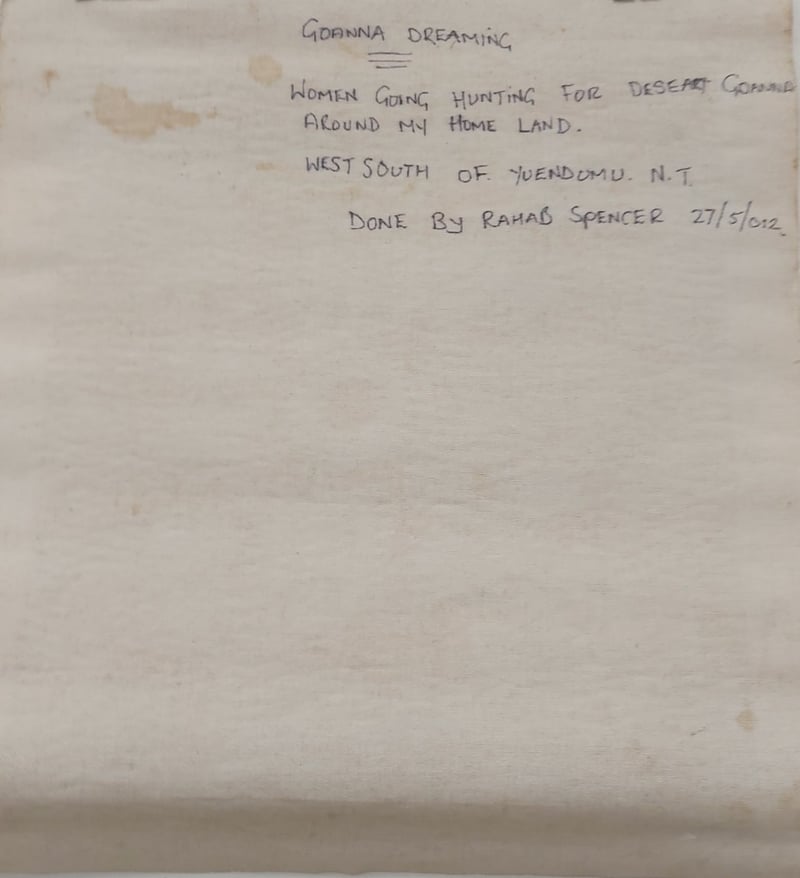 GOANNA DREAMING
WOMEN GOING HUNTING FOR DESEART GOANNA
AROUND MY HOME LAND.
WEST SOUTH OF YUENDUMU. N.T.
DONE BY RAHAB SPENCER 27/5/012